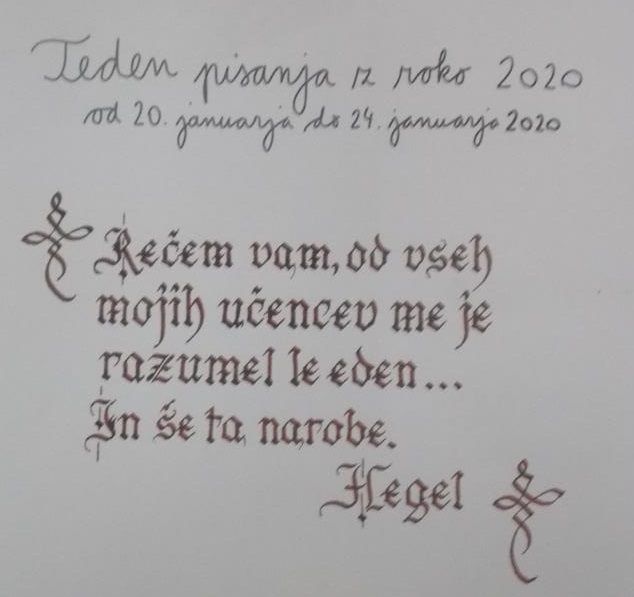 Teden pisanja z roko 2020
od 20. januarja do 24. januarja 2020
Rečem vam, od vseh
mojih učencev me je
razumel le eden...
In še ta narobe.
Hegel